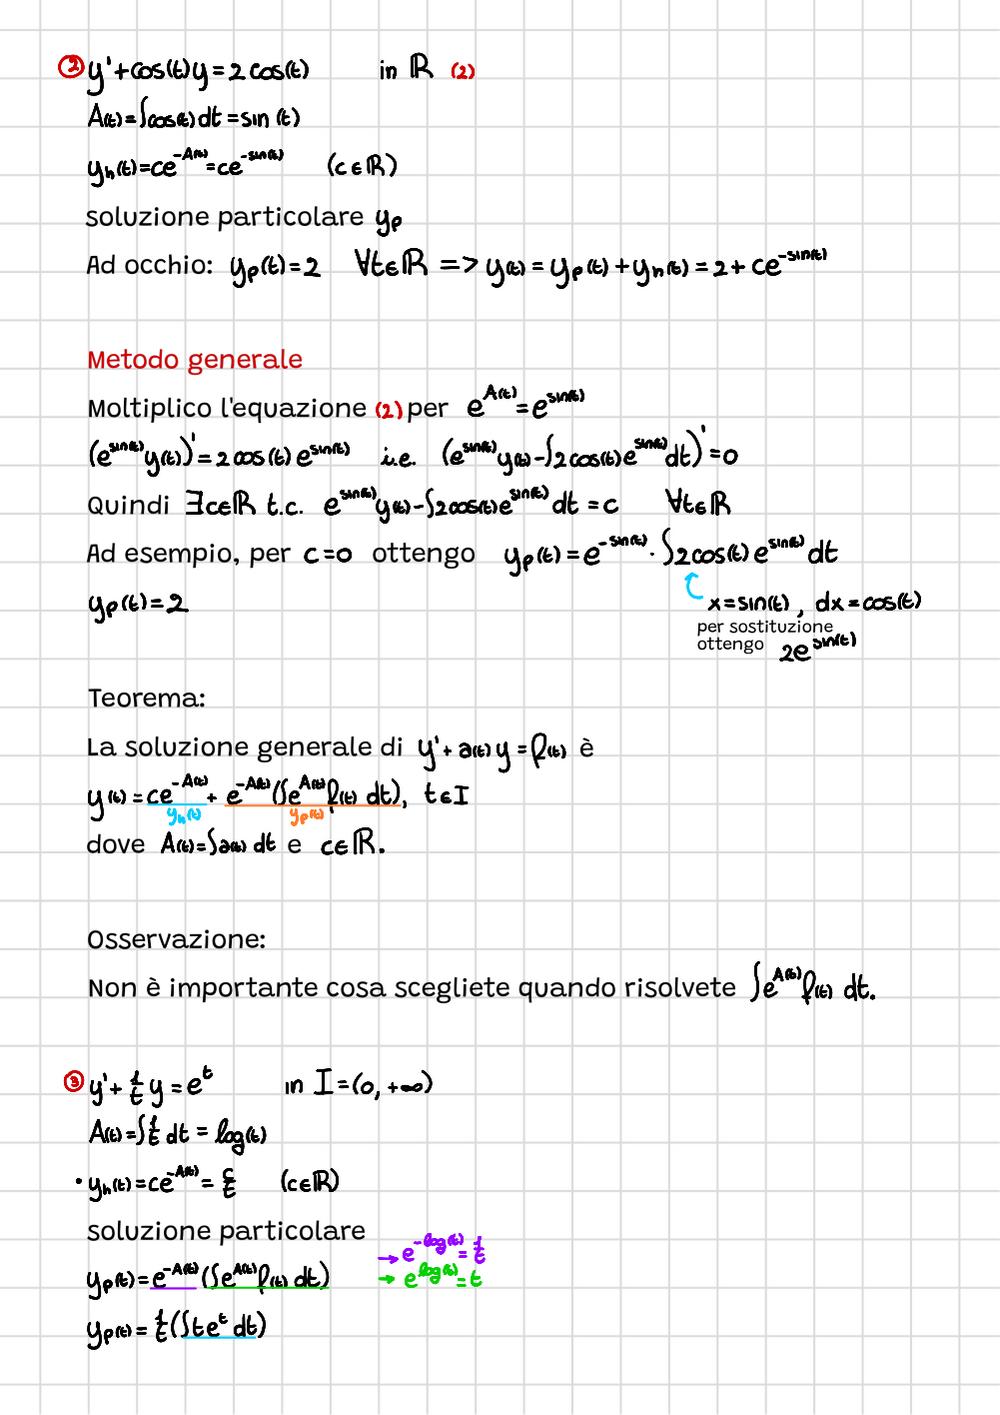 ② y'+cos(t)y=2cos(t) in ℝ (2)
A(t)=∫cos(t)dt=sin(t)
yₕ(t)=ce^(-A(t))=ce^(-sin(t)) (c∈ℝ)
soluzione particolare yₚ
Ad occhio: yₚ(t)=2 ∀t∈ℝ => y(t)=yₚ(t)+yₕ(t)=2+ce^(-sin(t))
Metodo generale
Moltiplico l'equazione (2) per e^(A(t))=e^(sin(t))
(e^(sin(t))y(t))'=2cos(t)e^(sin(t)) i.e. (e^(sin(t))y(t)-∫2cos(t)e^(sin(t))dt)'=0
Quindi ∃c∈ℝ t.c. e^(sin(t))y(t)-∫2cos(t)e^(sin(t))dt=c ∀t∈ℝ
Ad esempio, per c=0 ottengo yₚ(t)=e^(-sin(t))·∫2cos(t)e^(sin(t))dt
yₚ(t)=2 x=sin(t), dx=cos(t)
per sostituzione
ottengo 2e^(sin(t))
Teorema:
La soluzione generale di y'+a(t)y=f(t) è
y(t)=ce^(-A(t))+e^(-A(t))(∫e^(A(t))f(t)dt), t∈I
yₕ(t) yₚ(t)
dove A(t)=∫a(t)dt e c∈ℝ.
Osservazione:
Non è importante cosa scegliete quando risolvete ∫e^(A(t))f(t)dt.
③ y'+1/t y=e^t in I=(0,+∞)
A(t)=∫1/t dt=log(t)
• yₕ(t)=ce^(-A(t))=c/t (c∈ℝ)
soluzione particolare
→e^(-log(t))=1/t
yₚ(t)=e^(-A(t))(∫e^(A(t))f(t)dt) → e^(log(t))=t
yₚ(t)=1/t(∫te^t dt)